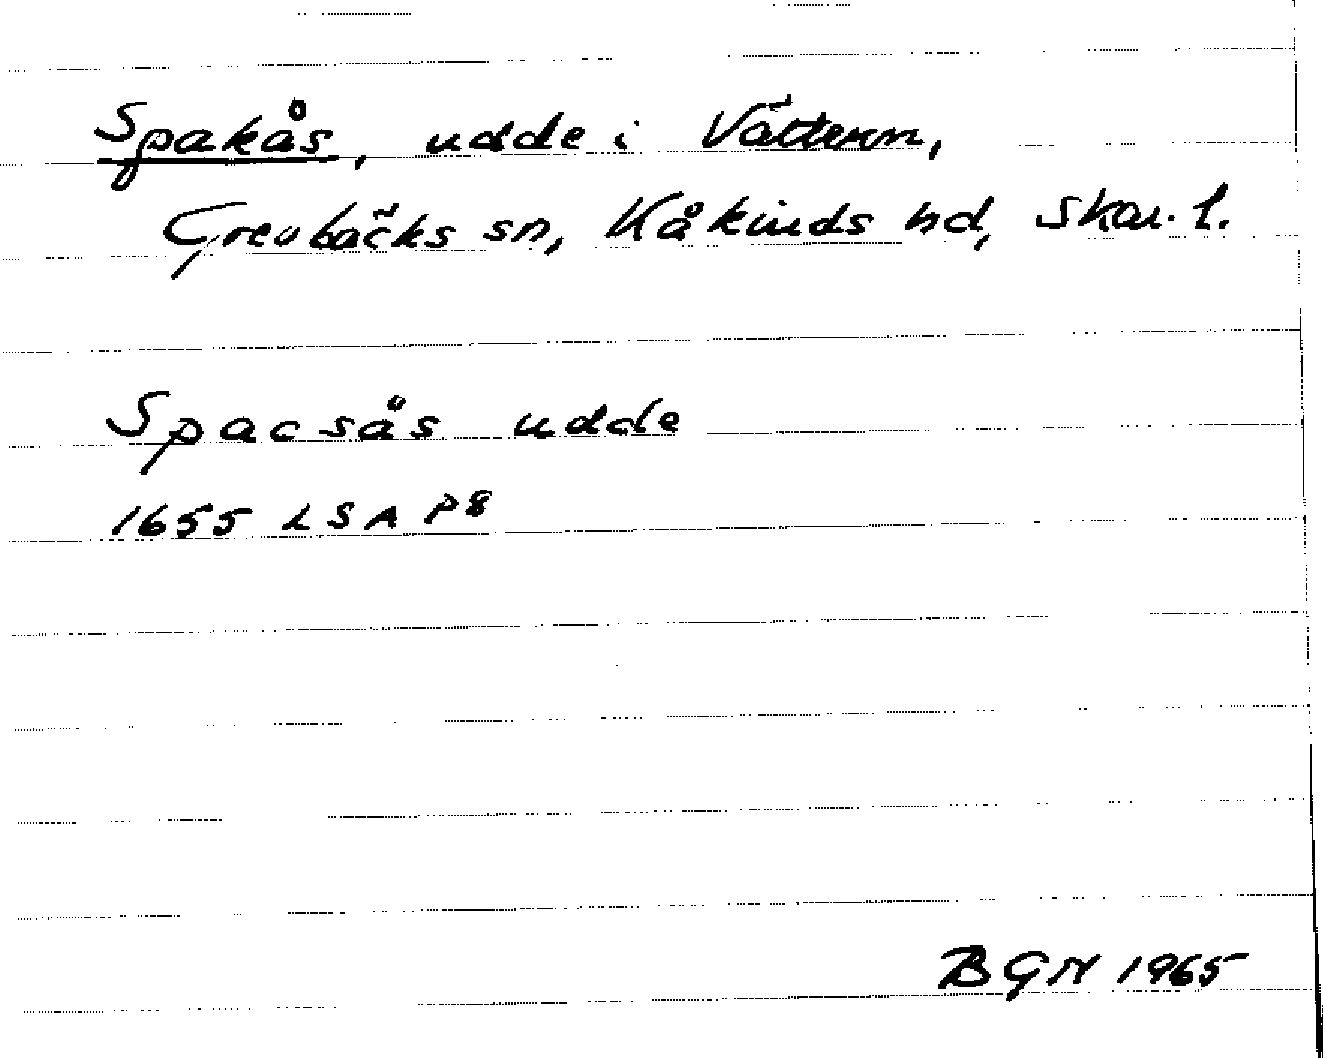 Spakås, udde i Vättern,
Grevbäcks sn, Kåkinds hd, Skar. l.
Spacsås udde
1655 LSA P8
BGN 1965